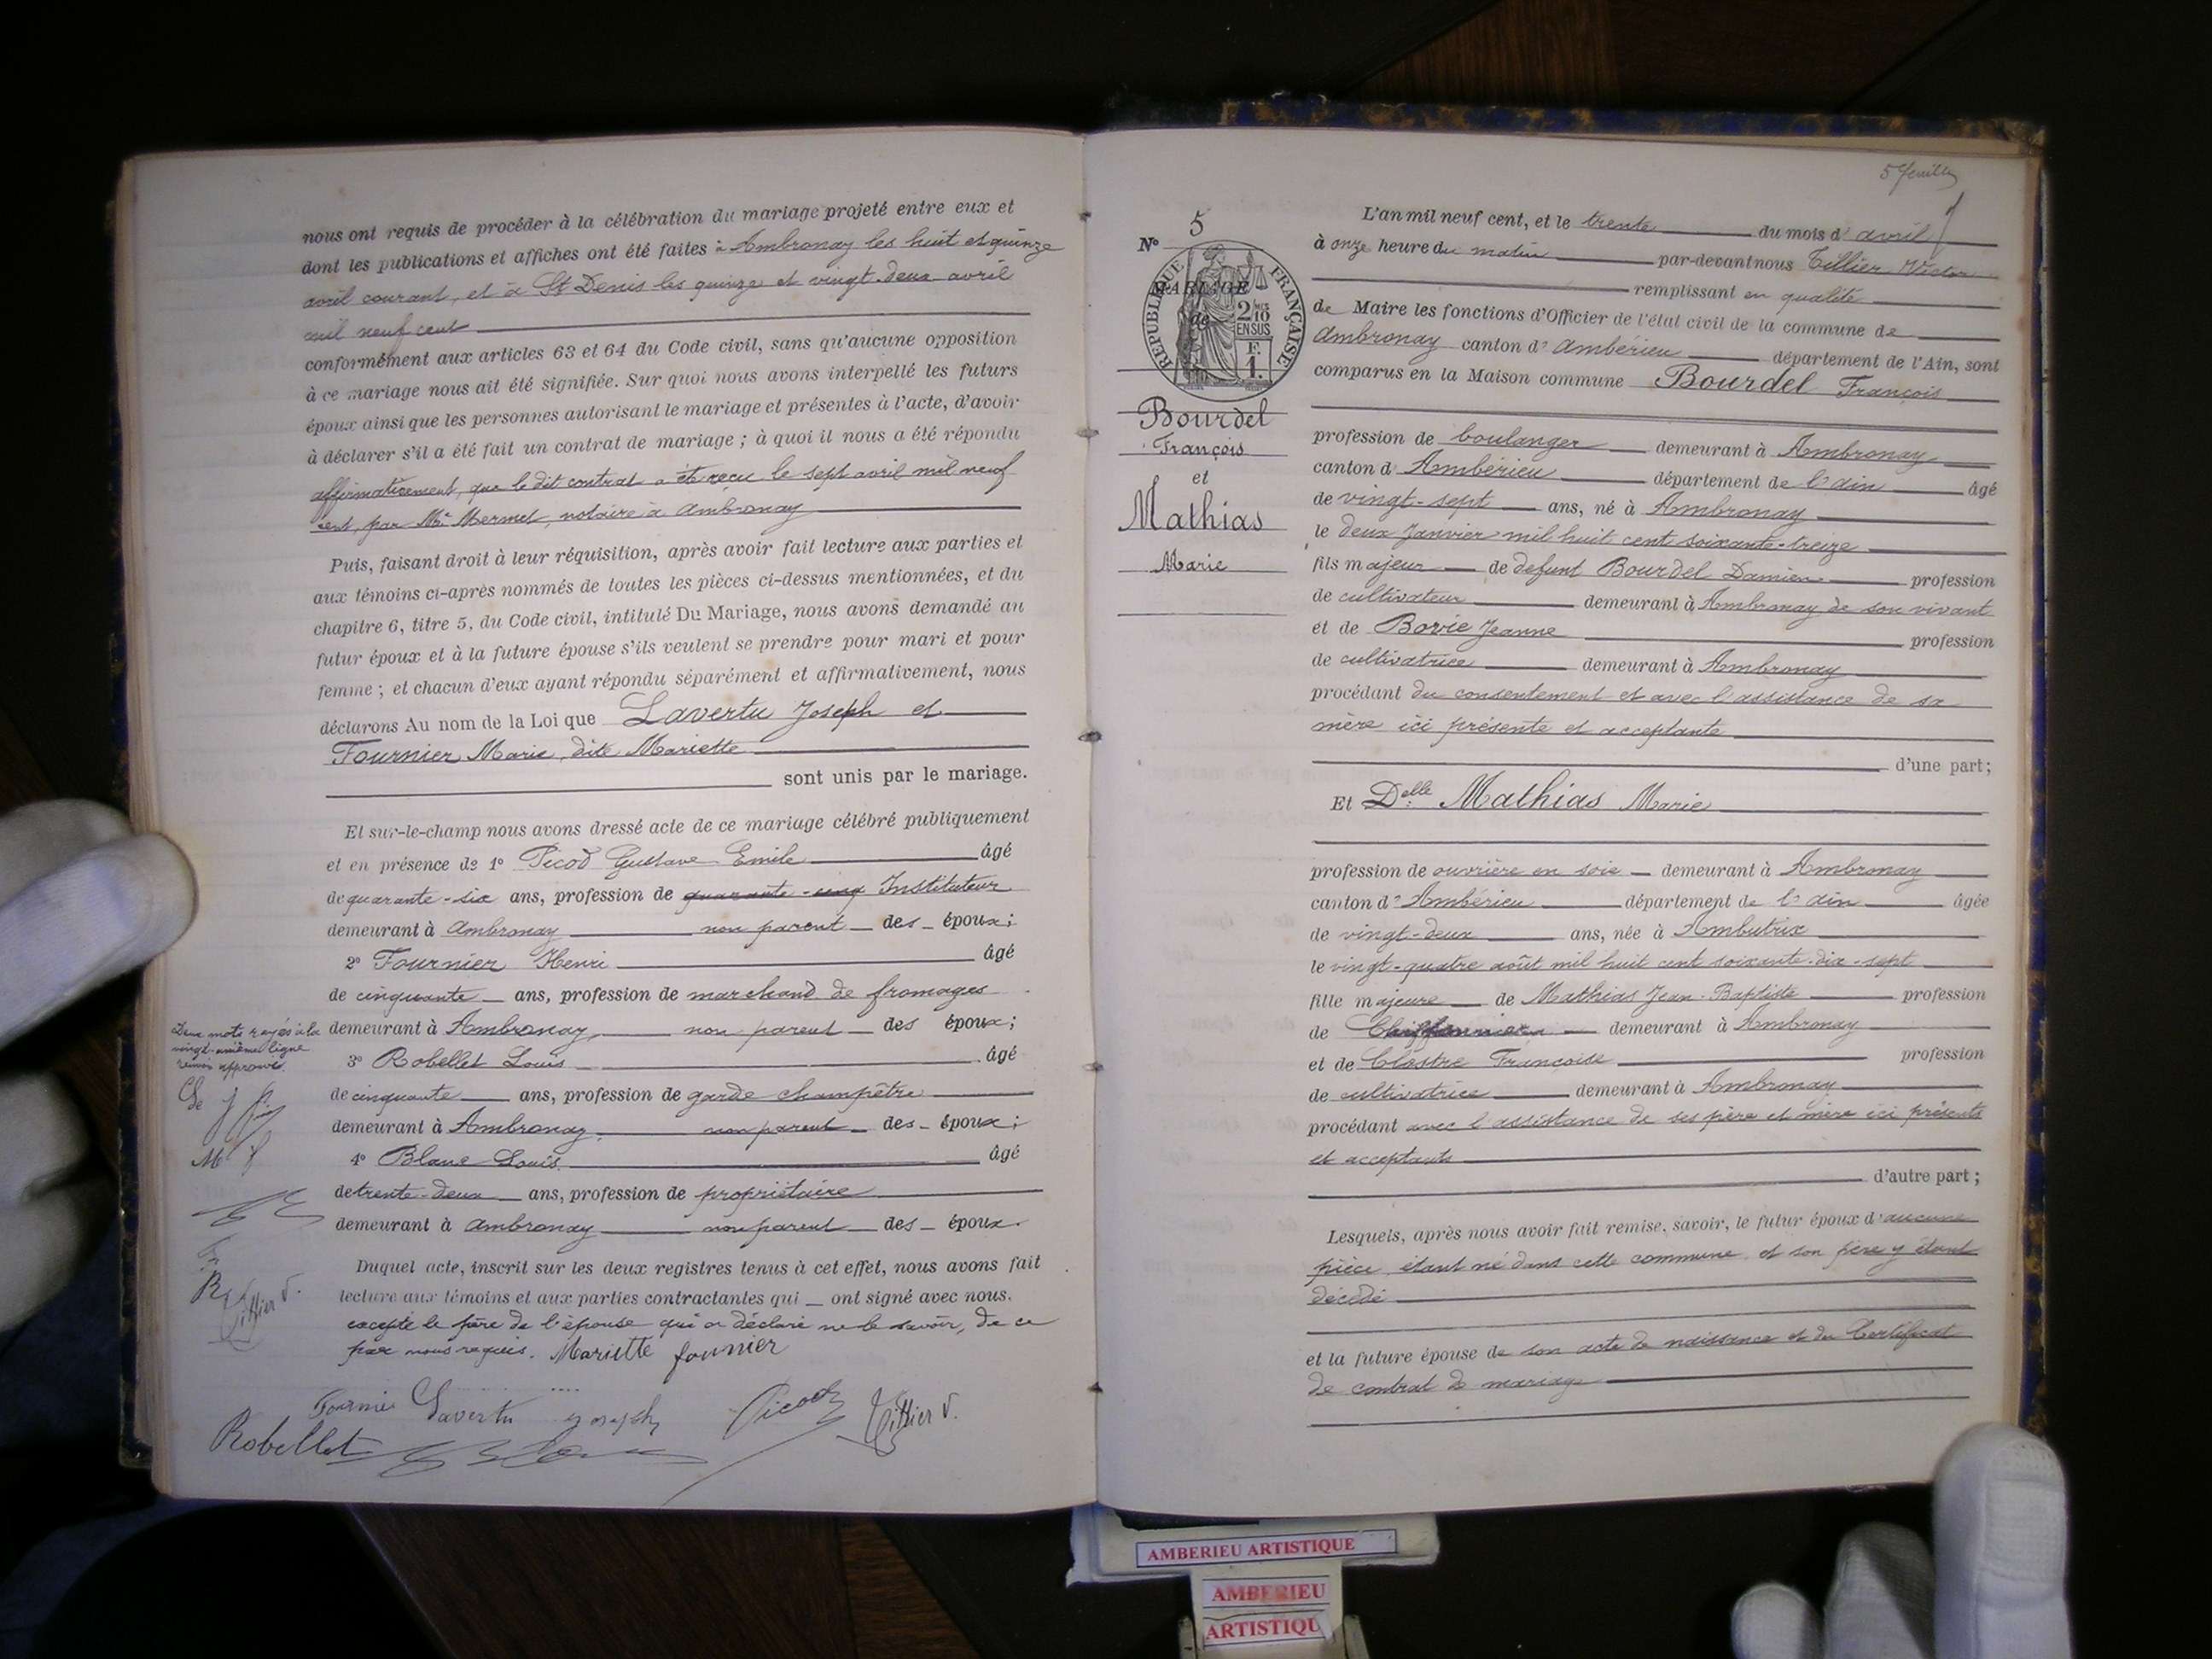 nous ont requis de procéder à la célébration du mariage projeté entre eux et
dont les publications et affiches ont été faites à Ambronay les huit et quinze
avril courant, et à St Denis les quinze et vingt-deux avril
mil neuf cent
conformément aux articles 63 et 64 du Code civil, sans qu'aucune opposition
à ce mariage nous ait été signifiée. Sur quoi nous avons interpellé les futurs
époux ainsi que les personnes autorisant le mariage et présentes à l'acte, d'avoir
à déclarer s'il a été fait un contrat de mariage ; à quoi il nous a été répondu
affirmativement, que le dit contrat a été reçu le sept avril mil neuf
cent, par Me Mermet, notaire à Ambronay
Puis, faisant droit à leur réquisition, après avoir fait lecture aux parties et
aux témoins ci-après nommés de toutes les pièces ci-dessus mentionnées, et du
chapitre 6, titre 5, du Code civil, intitulé Du Mariage, nous avons demandé au
futur époux et à la future épouse s'ils veulent se prendre pour mari et pour
femme ; et chacun d'eux ayant répondu séparément et affirmativement, nous
déclarons Au nom de la Loi que Lavertu Joseph et
Fournier Marie, dite Mariette
sont unis par le mariage.
Et sur-le-champ nous avons dressé acte de ce mariage célébré publiquement
et en présence de 1° Picod Gustave Emile âgé
de quarante-six ans, profession de quarante-cinq Instituteur
demeurant à Ambronay non parent des époux ;
2° Fournier Henri âgé
de cinquante ans, profession de marchand de fromages
demeurant à Ambronay non parent des époux ;
3° Robellet Louis âgé
de cinquante ans, profession de garde champêtre
demeurant à Ambronay non parent des époux ;
4° Blanc Louis âgé
de trente-deux ans, profession de propriétaire
demeurant à Ambronay non parent des époux.
Duquel acte, inscrit sur les deux registres tenus à cet effet, nous avons fait
lecture aux témoins et aux parties contractantes qui ont signé avec nous.
excepté le père de l'épouse qui a déclaré ne le savoir, de ce
par nous requis. Mariette fournier
Fournier Lavertu joseph Picod Tillier V.
Robellet
Deux mots rayés à la
vingt-unième ligne
approuvé.
Tillier V.
5 feuille
N° 5
MARIAGE
de
RÉPUBLIQUE FRANÇAISE
2/10 EN SUS
F.
1.
Bourdel
François
et
Mathias
Marie
L'an mil neuf cent, et le trente du mois d'avril
à onze heure du matin par-devant nous Tillier Victor
remplissant en qualité
de Maire les fonctions d'Officier de l'état civil de la commune de
Ambronay canton d'Ambérieu département de l'Ain, sont
comparus en la Maison commune Bourdel François
profession de boulanger demeurant à Ambronay
canton d'Ambérieu département de l'ain âgé
de vingt-sept ans, né à Ambronay
le deux Janvier mil huit cent soixante-treize
fils majeur de défunt Bourdel Damien profession
de cultivateur demeurant à Ambronay de son vivant
et de Bovie Jeanne profession
de cultivatrice demeurant à Ambronay
procédant du consentement et avec l'assistance de sa
mère ici présente et acceptante
d'une part ;
Et Delle Mathias Marie
profession de ouvrière en soie demeurant à Ambronay
canton d'Ambérieu département de l'ain âgée
de vingt-deux ans, née à Ambutrix
le vingt-quatre août mil huit cent soixante-dix-sept
fille majeure de Mathias Jean-Baptiste profession
de Chiffonnier demeurant à Ambronay
et de Clastre Françoise profession
de cultivatrice demeurant à Ambronay
procédant avec l'assistance de ses père et mère ici présents
et acceptants
d'autre part ;
Lesquels, après nous avoir fait remise, savoir, le futur époux d'aucune
pièce, étant né dans cette commune et son père y étant
décédé
et la future épouse de son acte de naissance et du Certificat
de contrat de mariage
AMBERIEU ARTISTIQUE
AMBERIEU
ARTISTIQU